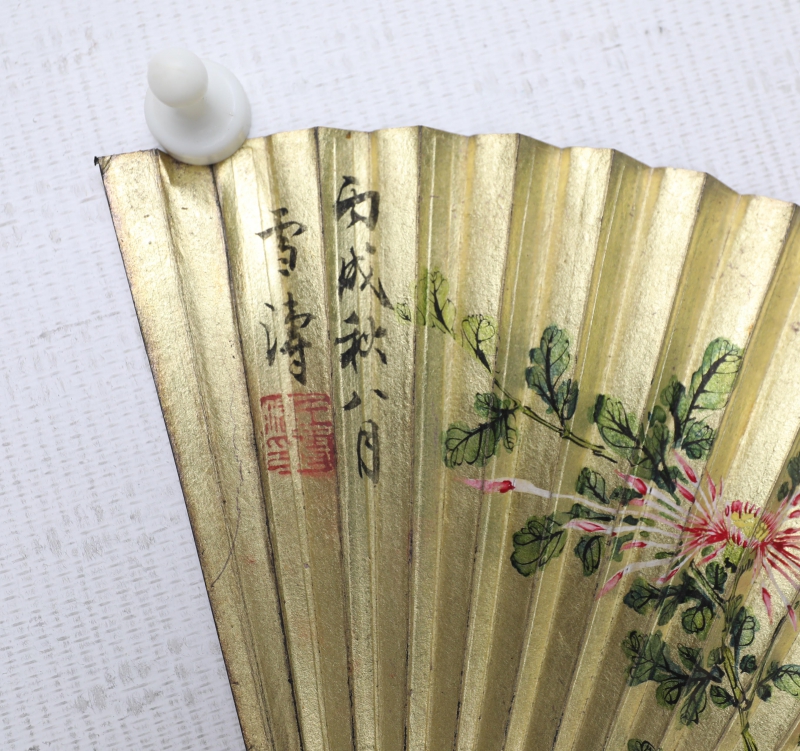 丙戌秋八月
雪濤